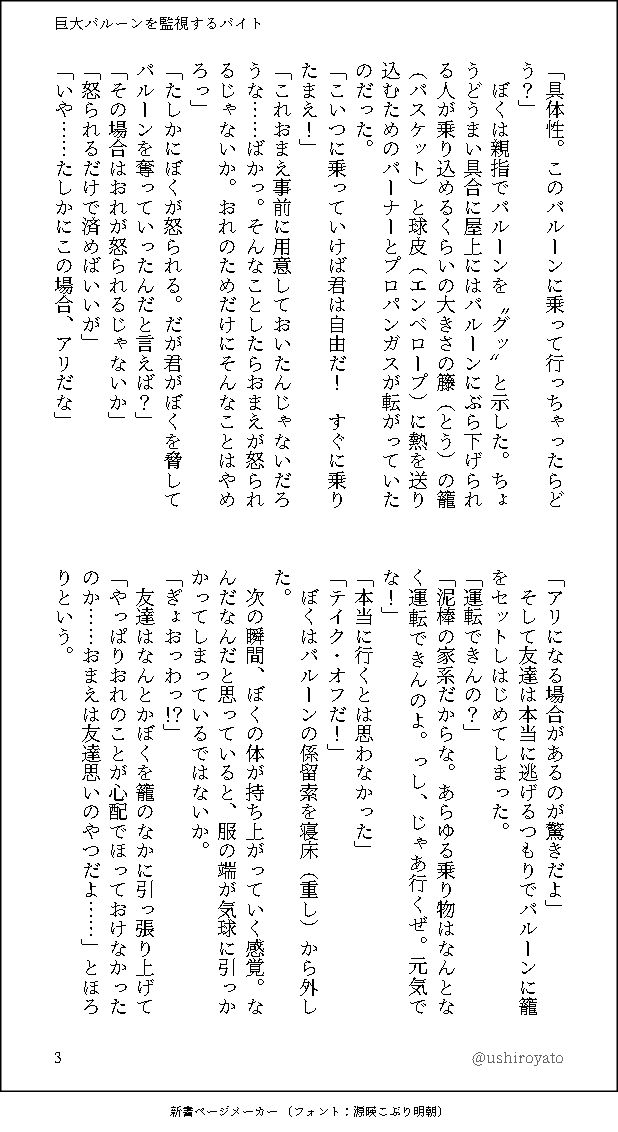 巨大バルーンを監視するバイト
「具体性。このバルーンに乗って行っちゃったらど
う？」
　ぼくは親指でバルーンを〝グッ〟と示した。ちょ
うどうまい具合に屋上にはバルーンにぶら下げられ
る人が乗り込めるくらいの大きさの籐（とう）の籠
（バスケット）と球皮（エンベロープ）に熱を送り
込むためのバーナーとプロパンガスが転がっていた
のだった。
「こいつに乗っていけば君は自由だ！　すぐに乗り
たまえ！」
「これおまえ事前に用意しておいたんじゃないだろ
うな……ばかっ。そんなことしたらおまえが怒られ
るじゃないか。おれのためだけにそんなことはやめ
ろっ」
「たしかにぼくが怒られる。だが君がぼくを脅して
バルーンを奪っていったんだと言えば？」
「その場合はおれが怒られるじゃないか」
「怒られるだけで済めばいいが」
「いや……たしかにこの場合、アリだな」
「アリになる場合があるのが驚きだよ」
　そして友達は本当に逃げるつもりでバルーンに籠
をセットしはじめてしまった。
「運転できんの？」
「泥棒の家系だからな。あらゆる乗り物はなんとな
く運転できんのよ。っし、じゃあ行くぜ。元気で
な！」
「本当に行くとは思わなかった」
「テイク・オフだ！」
　ぼくはバルーンの係留索を寝床（重し）から外し
た。
　次の瞬間、ぼくの体が持ち上がっていく感覚。な
んだなんだと思っていると、服の端が気球に引っか
かってしまっているではないか。
「ぎょおっわっ!?」
　友達はなんとかぼくを籠のなかに引っ張り上げて
「やっぱりおれのことが心配でほっておけなかった
のか……おまえは友達思いのやつだよ……」とほろ
りという。
3
@ushiroyato
新書ページメーカー（フォント：源暎こぶり明朝）